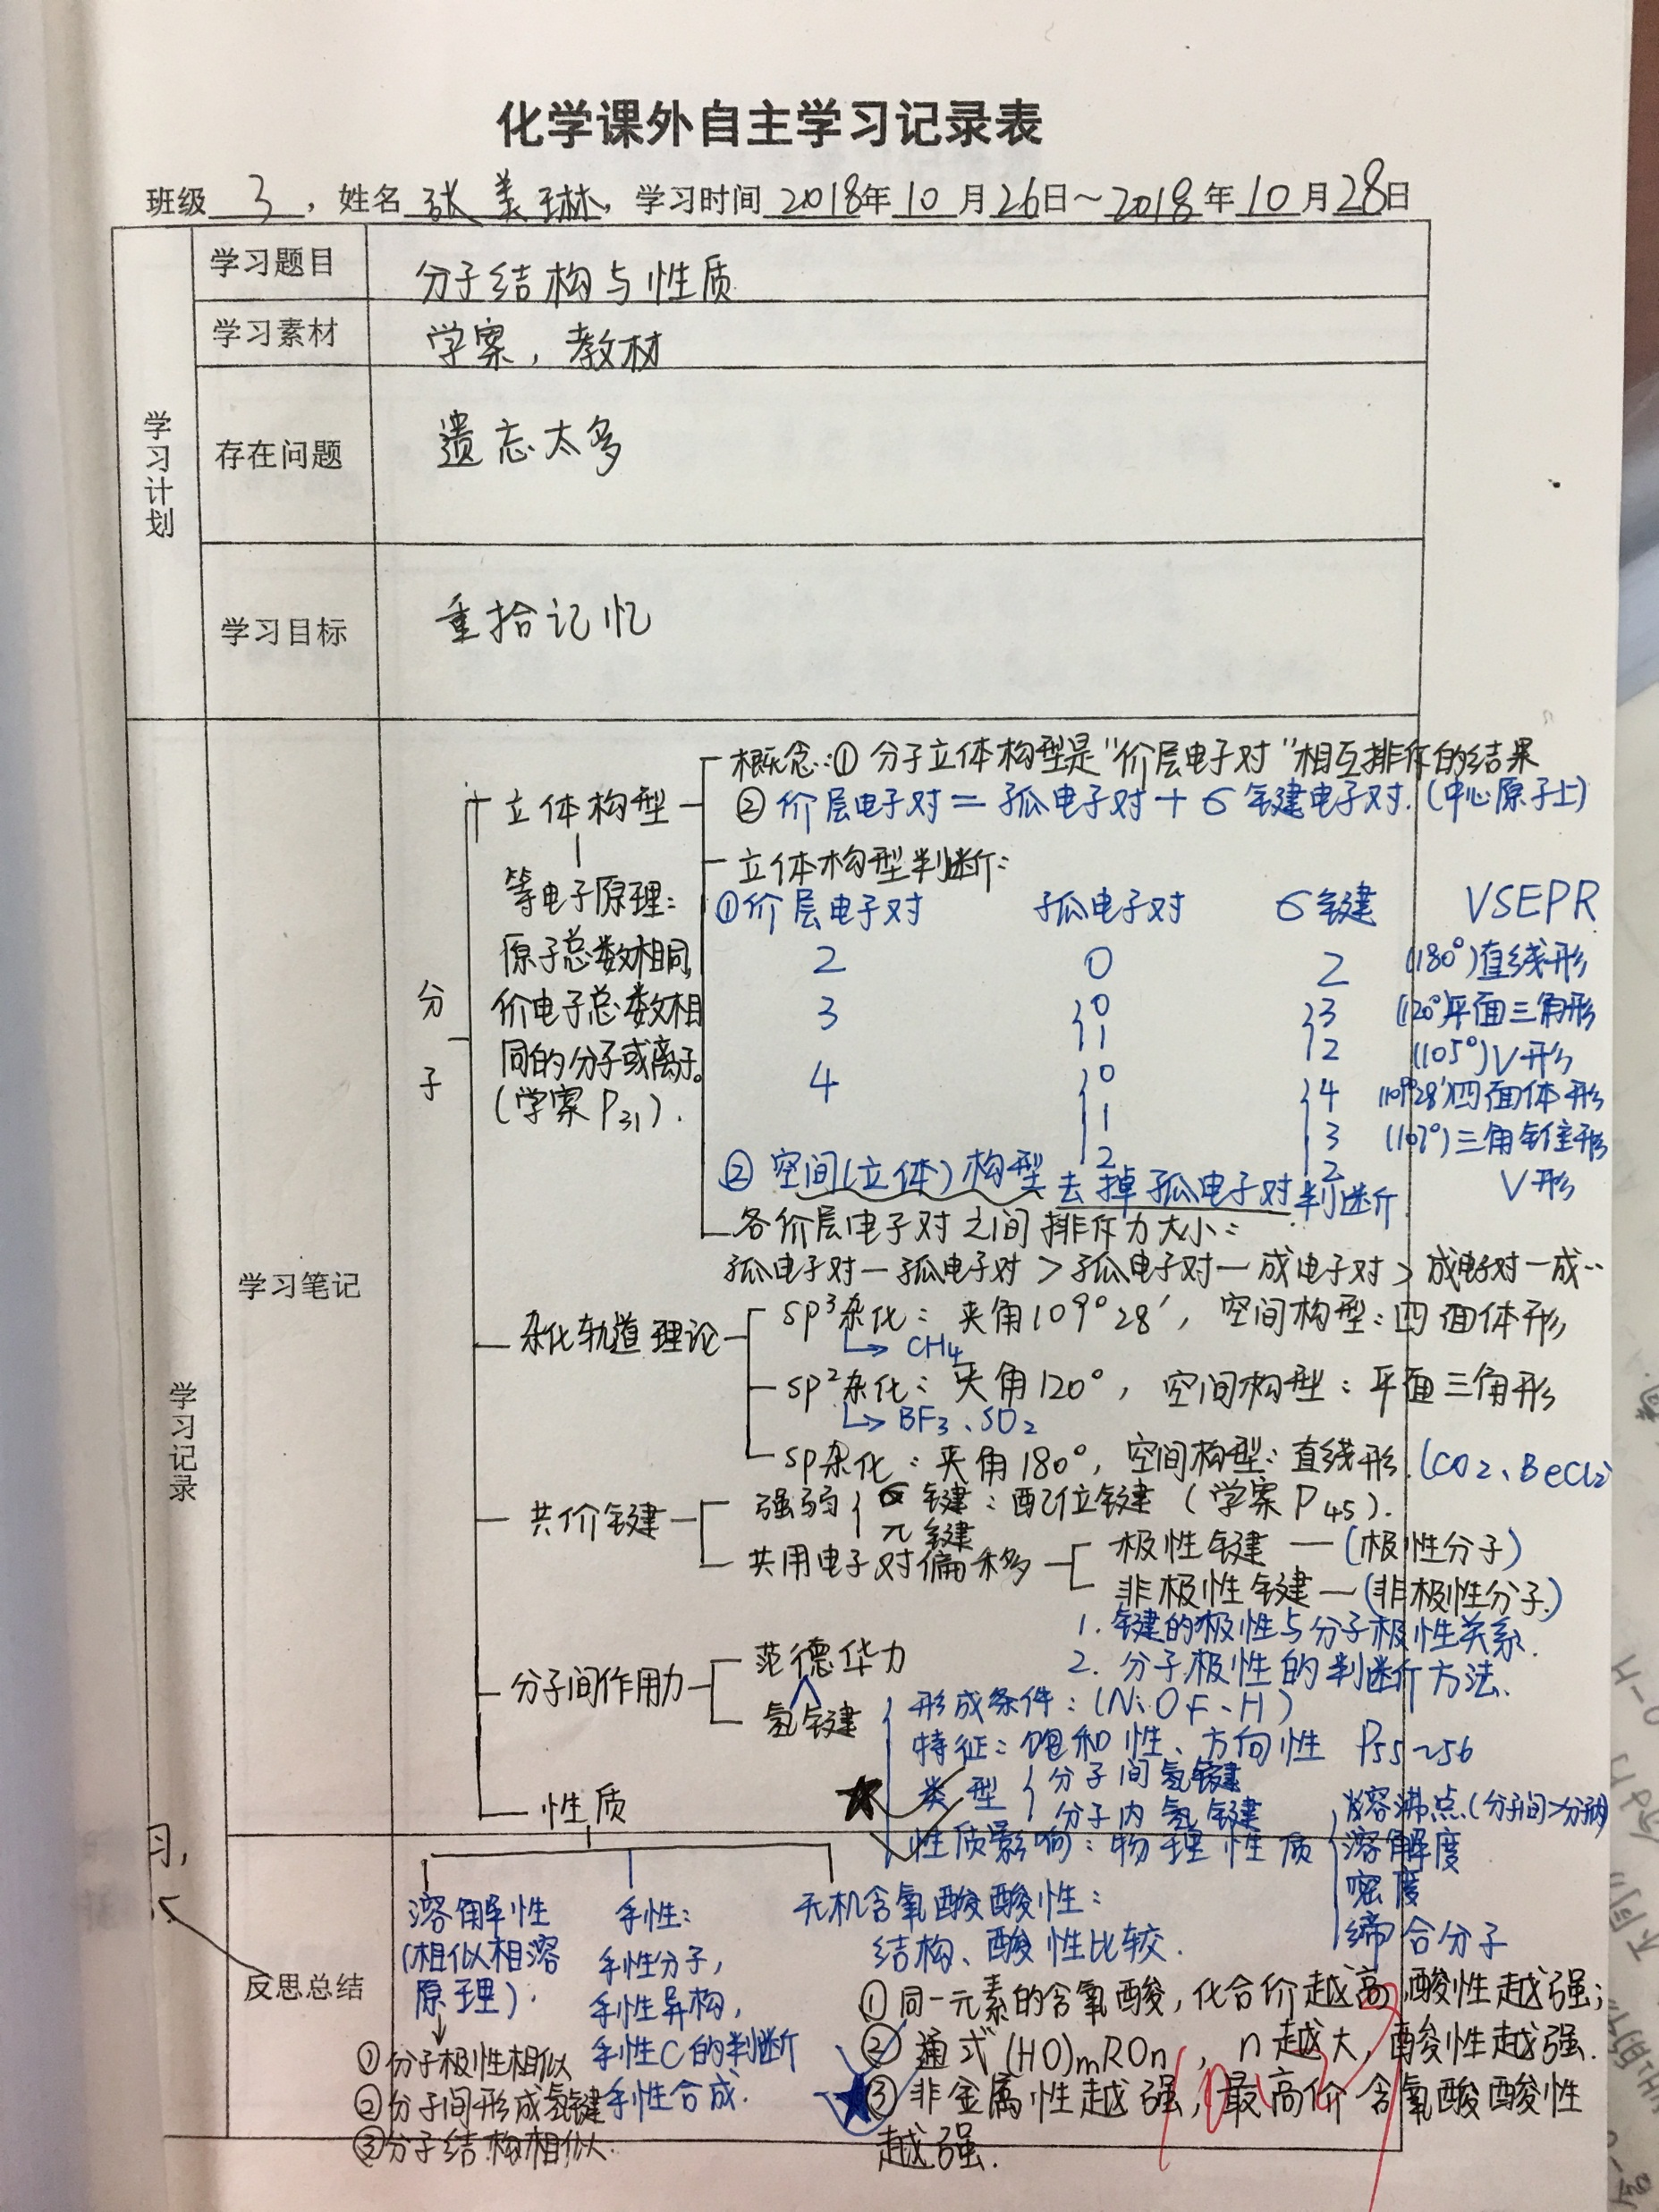 化学课外自主学习记录表
班级 3 ，姓名 张美琳，学习时间 2018年 10 月 26日～2018年 10 月 28日
学习计划
学习题目 分子结构与性质
学习素材 学案，教材
存在问题 遗忘太多
学习目标 重拾记忆
学习记录
学习笔记
分子
立体构型
概念：① 分子立体构型是"价层电子对"相互排斥的结果
② 价层电子对 = 孤电子对 + σ 键电子对.（中心原子上）
等电子原理：
原子总数相同,
价电子总数相
同的分子或离子。
（学案 P31）.
立体构型判断：
①价层电子对 孤电子对 σ 键 VSEPR
2 0 2 (180°)直线形
3 0 3 (120°)平面三角形
1 2 (105°)V形
4 0 4 (109°28')四面体形
1 3 (107°)三角锥形
2 2 V形
② 空间(立体)构型 去掉孤电子对判断
各价层电子对之间排斥力大小：
孤电子对—孤电子对 > 孤电子对—成电子对 > 成电子对—成··
杂化轨道理论
sp³杂化：夹角109°28′，空间构型：四面体形
↳ CH4
sp²杂化：夹角120°，空间构型：平面三角形
↳ BF3、SO2
sp杂化：夹角180°，空间构型：直线形.（CO2、BeCl2）
共价键
强弱 σ 键：配位键（学案 P45）.
π 键
共用电子对偏移
极性键 —（极性分子）
非极性键 —（非极性分子.）
1. 键的极性与分子极性关系.
2. 分子极性的判断方法.
分子间作用力
范德华力
∧
氢键
形成条件：（N、O F、H）
特征：饱和性、方向性 P55~56
类型 分子间氢键
分子内氢键
性质影响：物理性质
熔沸点.（分子间>分子内）
溶解度
密度
缔合分子
性质
反思总结
习,
溶解性
(相似相溶
原理).
① 分子极性相似
② 分子间形成氢键
③ 分子结构相似.
手性：
手性分子,
手性异构,
手性C的判断
手性合成.
无机含氧酸酸性：
结构、酸性比较.
① 同一元素的含氧酸，化合价越高,酸性越强；
② 通式 (HO)mROn ，n越大，酸性越强.
③ 非金属性越强，最高价含氧酸酸性
越强.